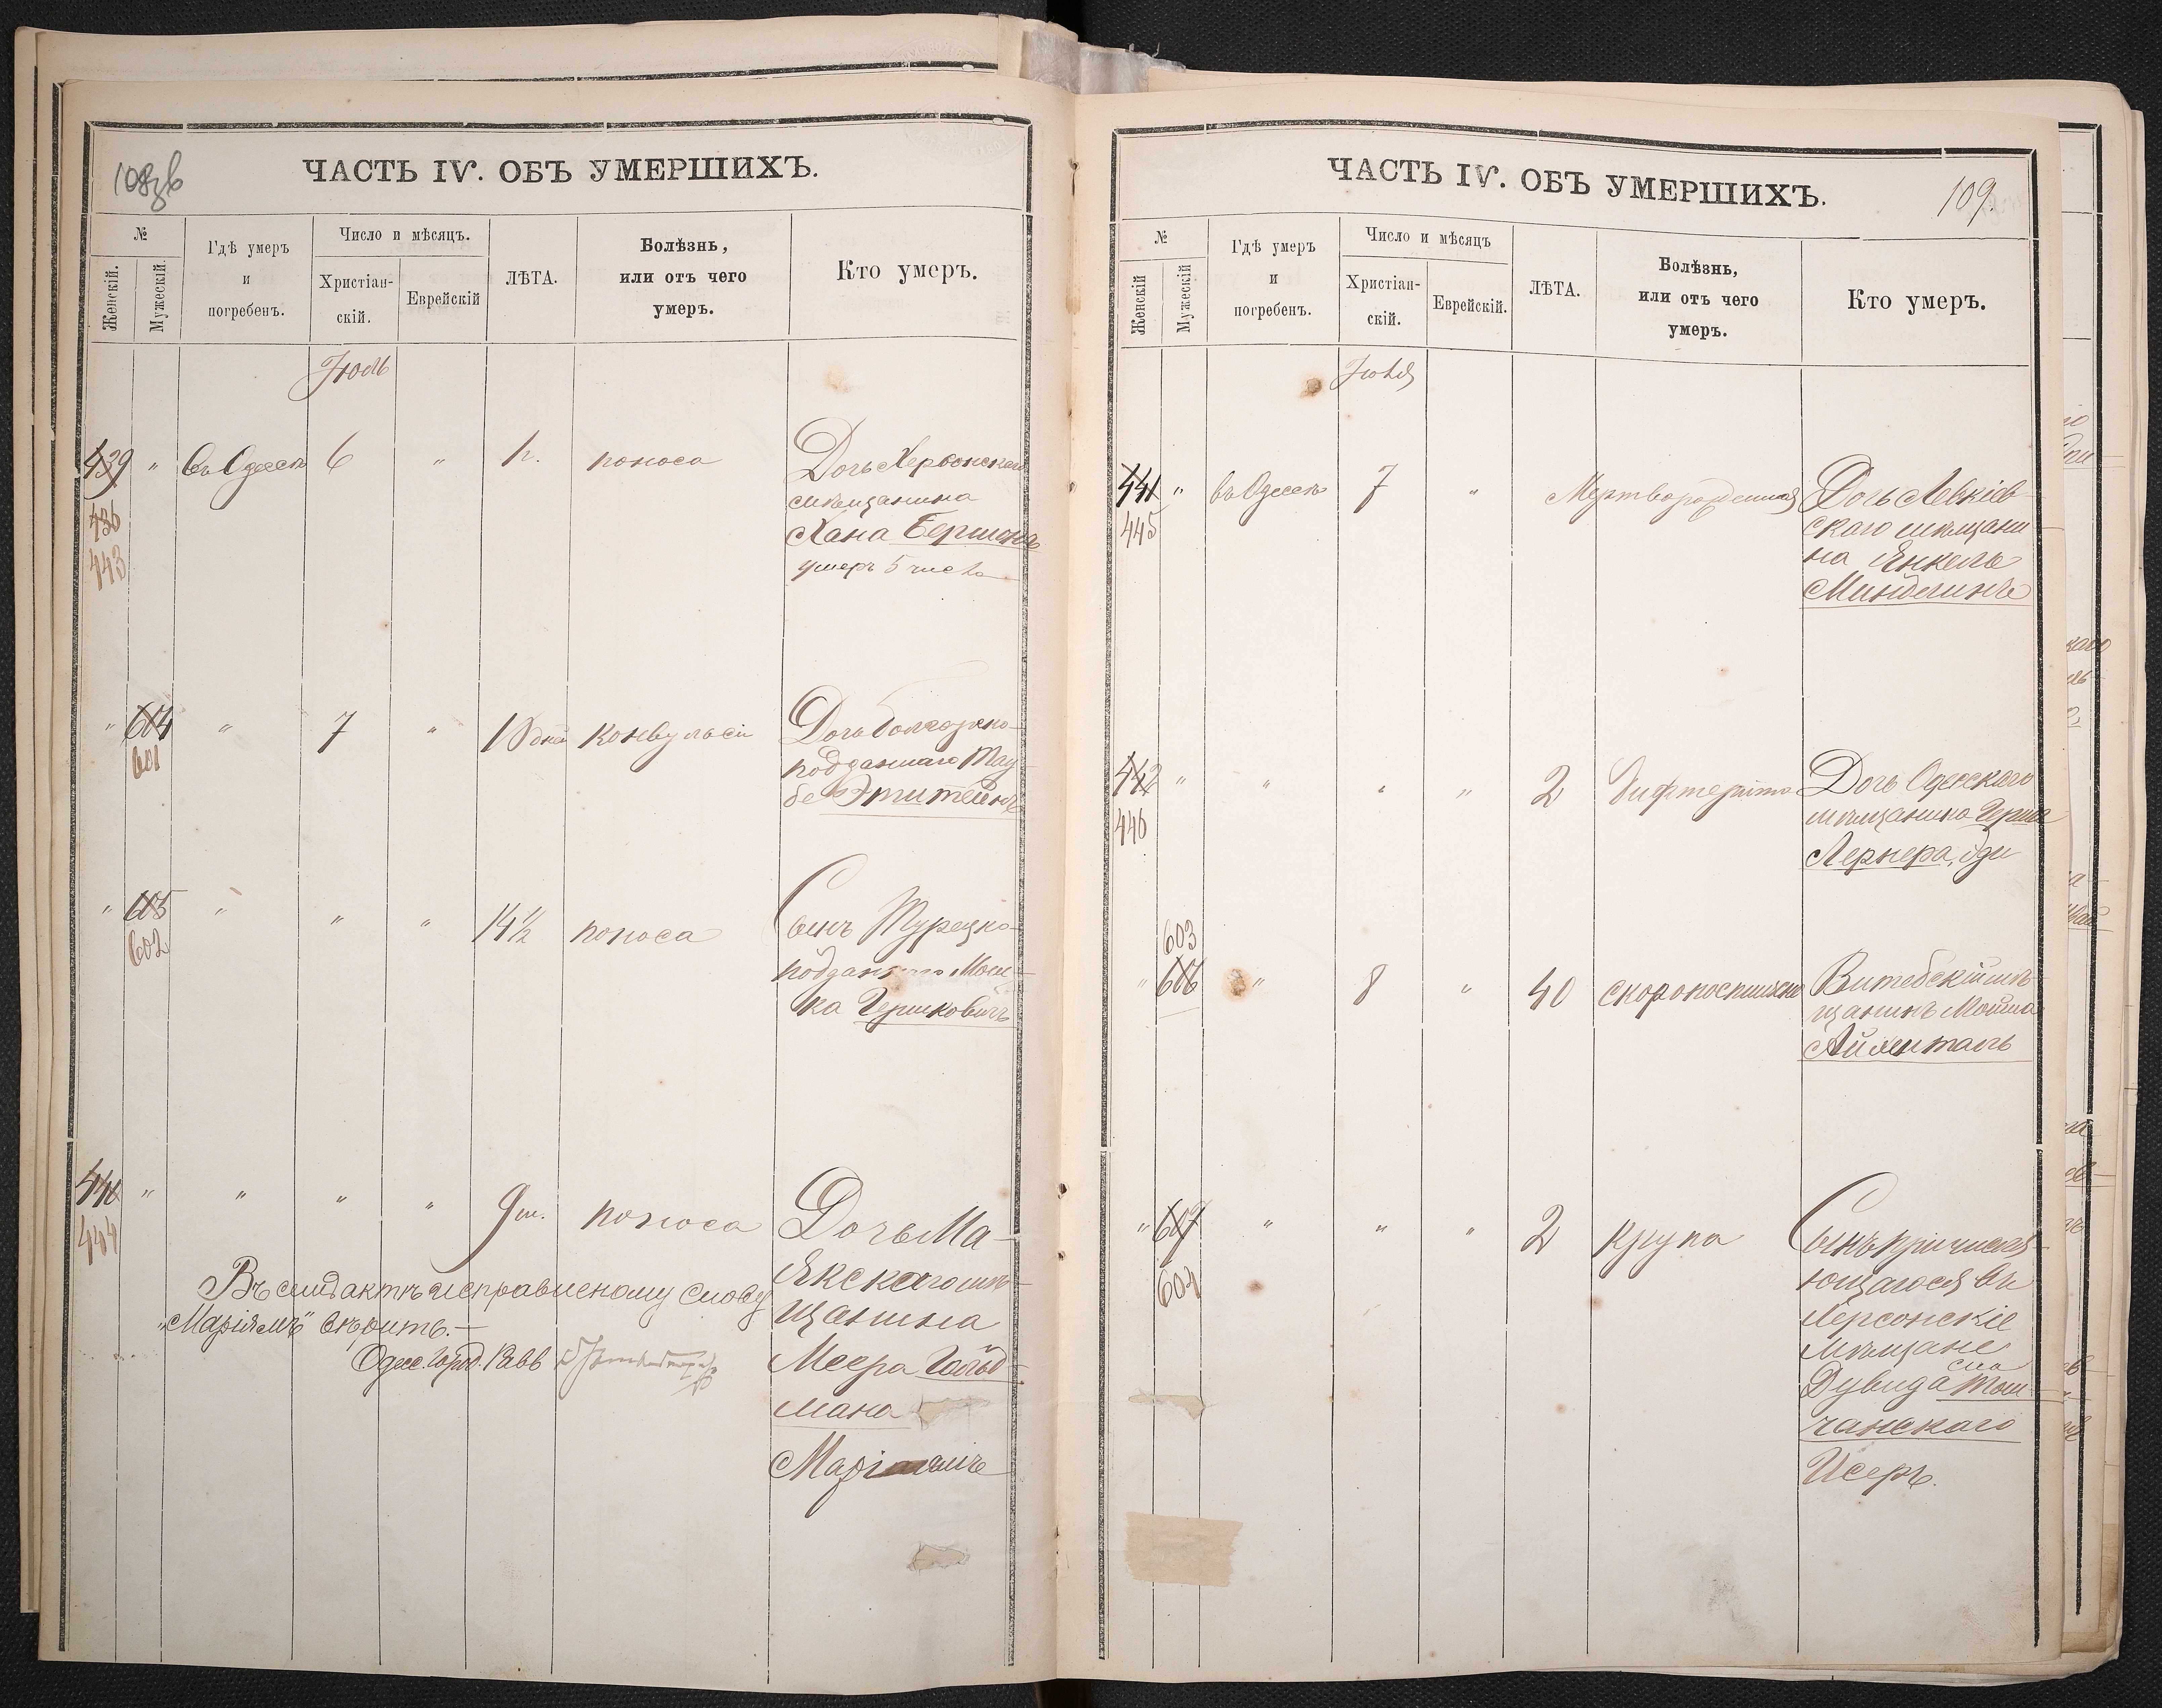 108 об
ЧАСТЬ IV. ОБЪ УМЕРШИХЪ.
№
Женскій.
Мужескій.
Гдѣ умеръ
и
погребенъ.
Число и мѣсяцъ.
Христіан-
скій.
Еврейскій
ЛѢТА.
Болѣзнь,
или отъ чего
умеръ.
Кто умеръ.
Іюль
439 " въ Одессѣ 6 " поноса Дочь Херсонскаго
436 мѣщанина
443 Хана
умеръ 5 числа
" 604 " 7 " конвульсіи Дочь
601 подданнаго Тау-
бе
" 605 " " " 1 4½ поноса Сынъ Турецко-
602 подданнаго Мош-
ка Гершковичъ
440 " " " " 9 м. поноса Дочь Ма-
444 якскаго мѣ-
щанина
Меера Гольд-
мана
Маріямъ
Въ семъ актѣ исправленому слову
„Маріямъ“ вѣрить.—
Одес. Город. Равв
109.
ЧАСТЬ IV. ОБЪ УМЕРШИХЪ.
№
Женскій
Мужескій
Гдѣ умеръ
и
погребенъ.
Число и мѣсяцъ
Христіан-
скій.
Еврейскій.
ЛѢТА.
Болѣзнь,
или отъ чего
умеръ.
Кто умеръ.
Іюля
441 " въ Одессѣ 7 " Мертворожденная Дочь
445 скаго мѣщани
на Янкель
442 " " " " 2 Дифтерита Дочь Одесскаго
446 мѣщанина Герша
Лернера,
603
" 606 " 8 " 40 скоропостижно Витебскій мѣ-
щанинъ
" 607 " " " 2 крупа Сынъ причисля-
604 ющагося въ
Херсонскіе
мѣщане
Дувида
чанскаго
Исеръ.